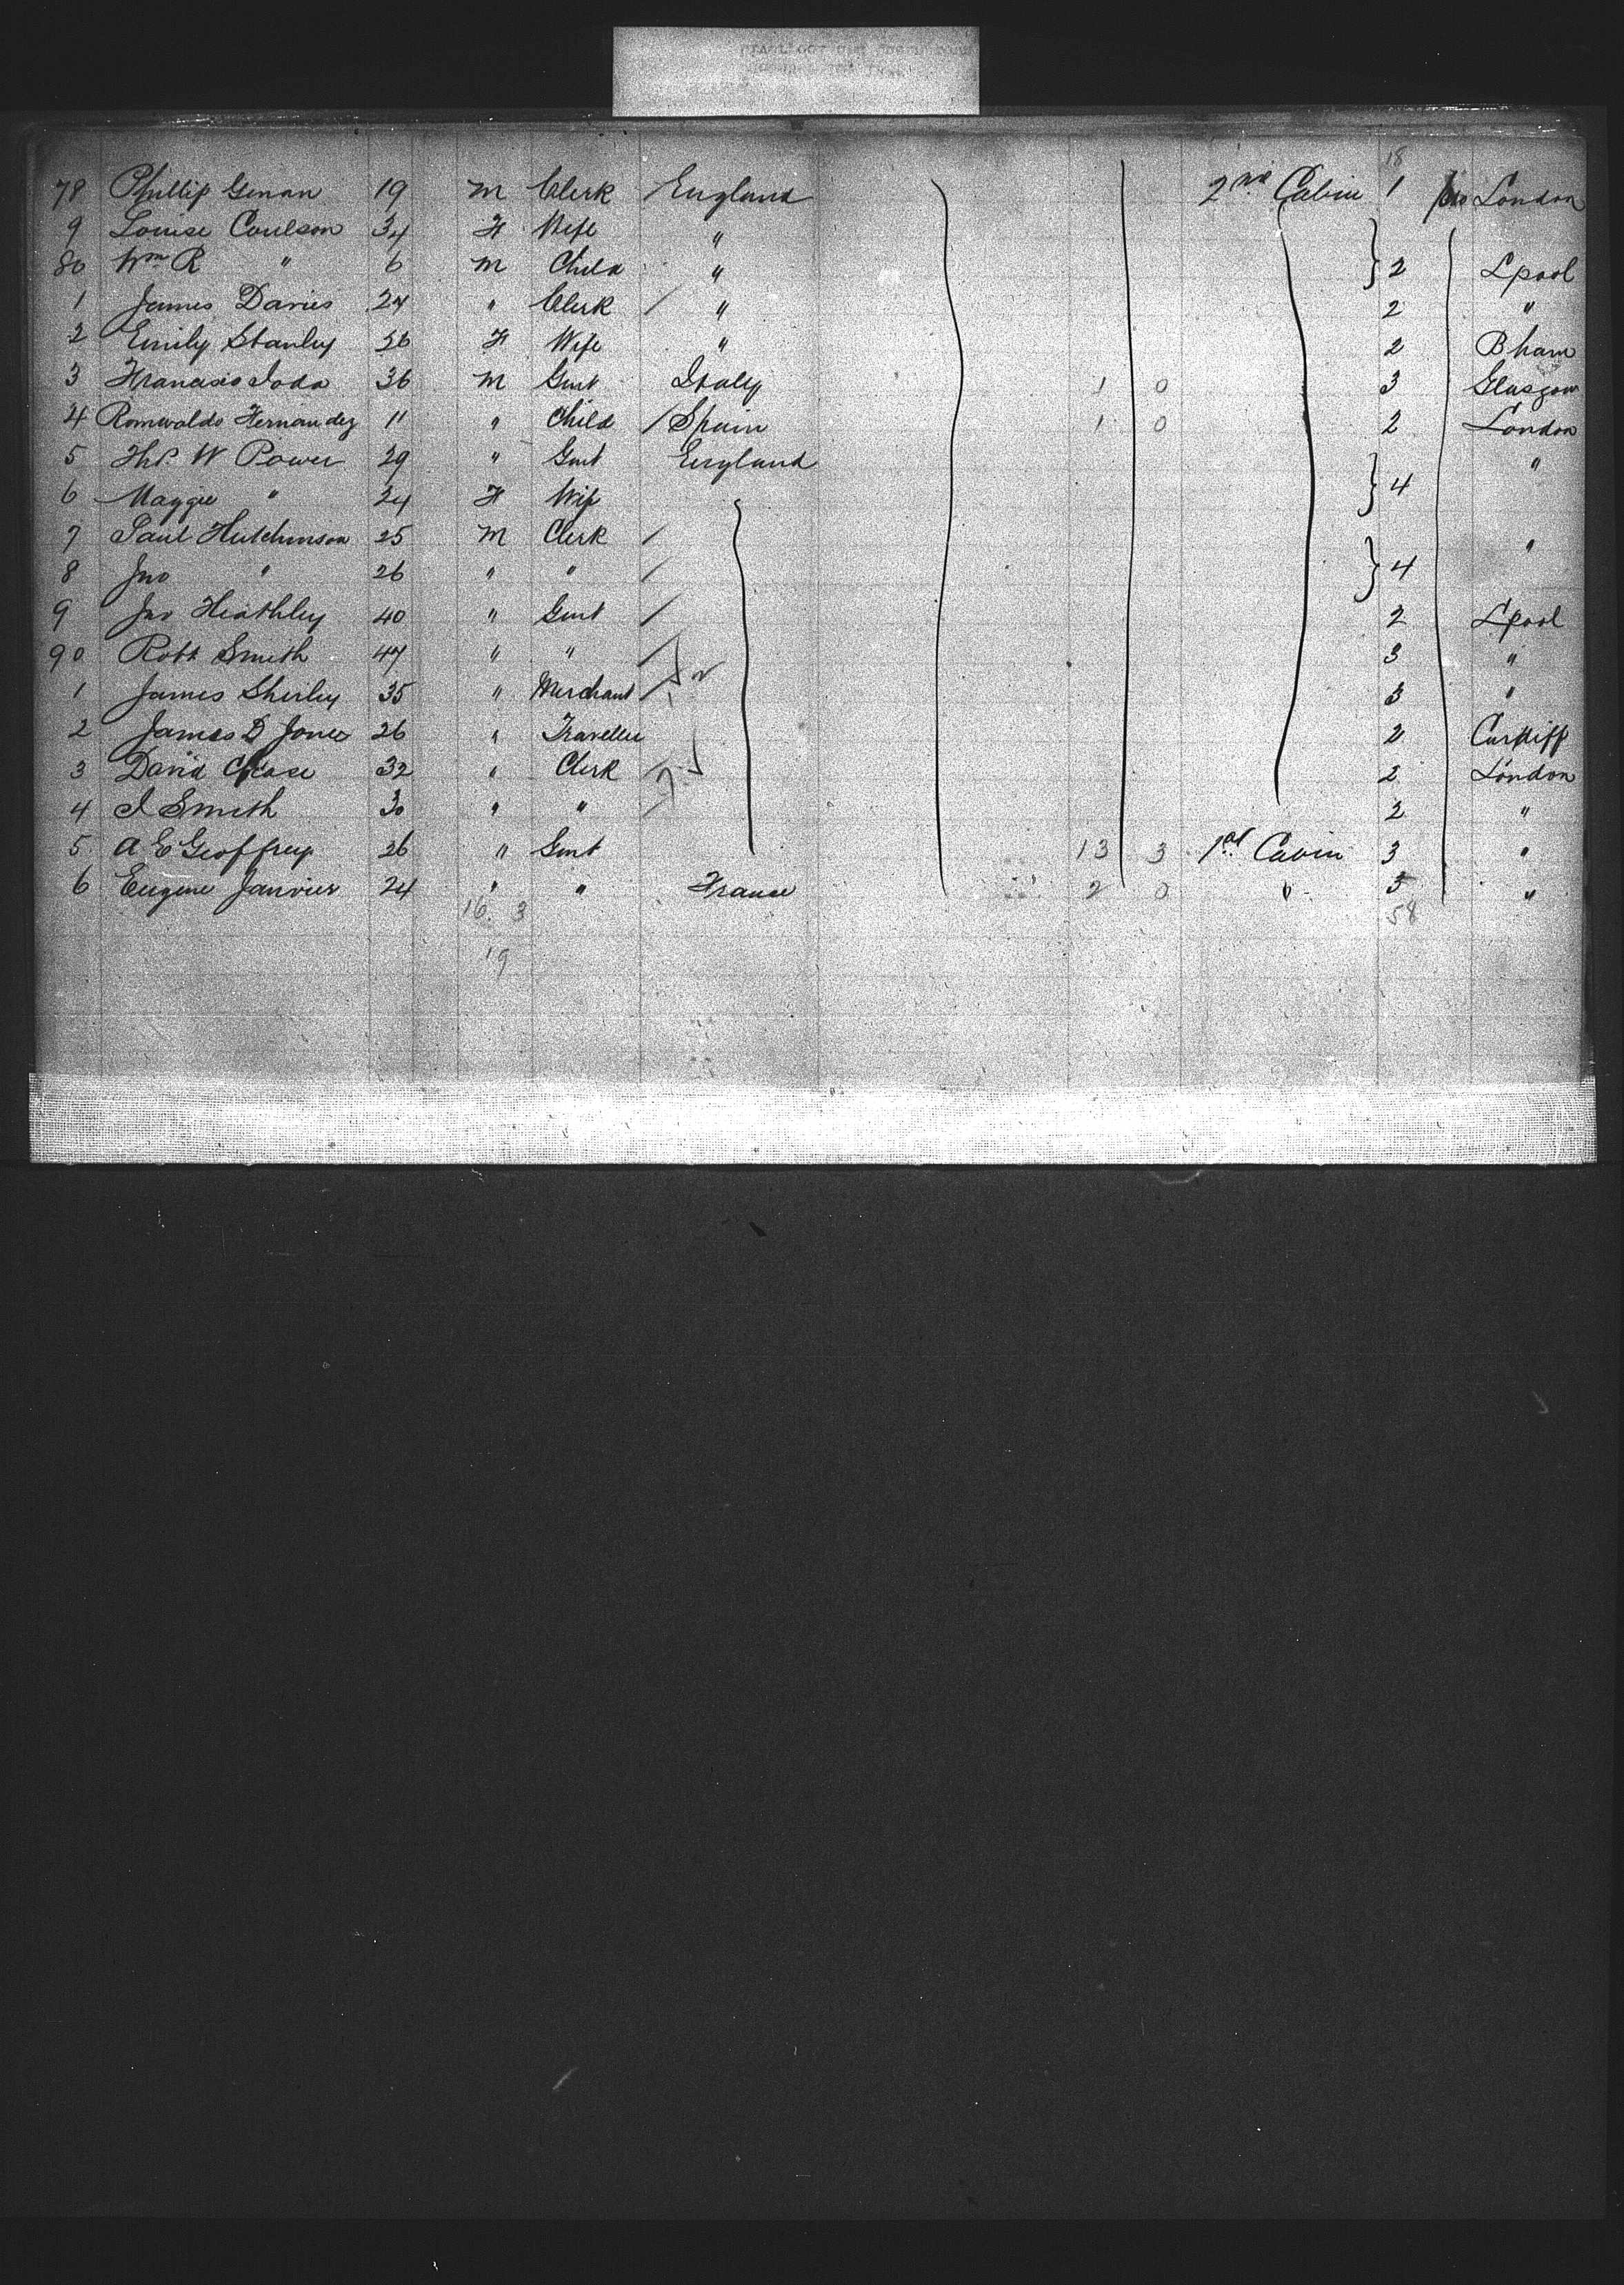 18
78 Phillip Genan 19 M Clerk / England 2nd Cabin 1 London
9 Louise Coulson 34 F Wife "
80 Wm R " 6 M Child " } 2 Lpool
1 James Davies 24 " Clerk / " 2 "
2 Emily Stanley 26 F Wife " 2 Bham
3 36 M Gent Italy 1 0 3 Glasgow
4 Romualdo Hernandez 11 " Child / Spain 1 0 2 London
5 W Power 29 " Gent England "
6 Maggie " 24 F Wife } 4
7 Paul Hutchinson 25 M Clerk / "
8 Jno " 26 " " / } 4
9 Jno Heathley 40 " Gent / 2 Lpool
90 Robt Smith 47 " " / 3 "
1 James Shirley 35 " Merchant / 3 "
2 James D Jones 26 " Traveller 2 Cardiff
3 David Chase 32 " Clerk / 2 London
4 J Smith 30 " " / 2 "
5 A E Geoffrey 26 " Gent 13 3 1st Cabin 3 "
6 Eugene Janvier 24 " " France 2 0 " 5 "
16 3 58
19